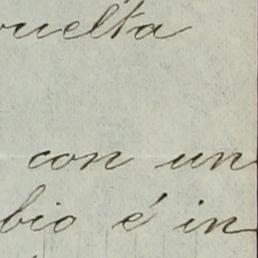 vuelta
con un
bio é in